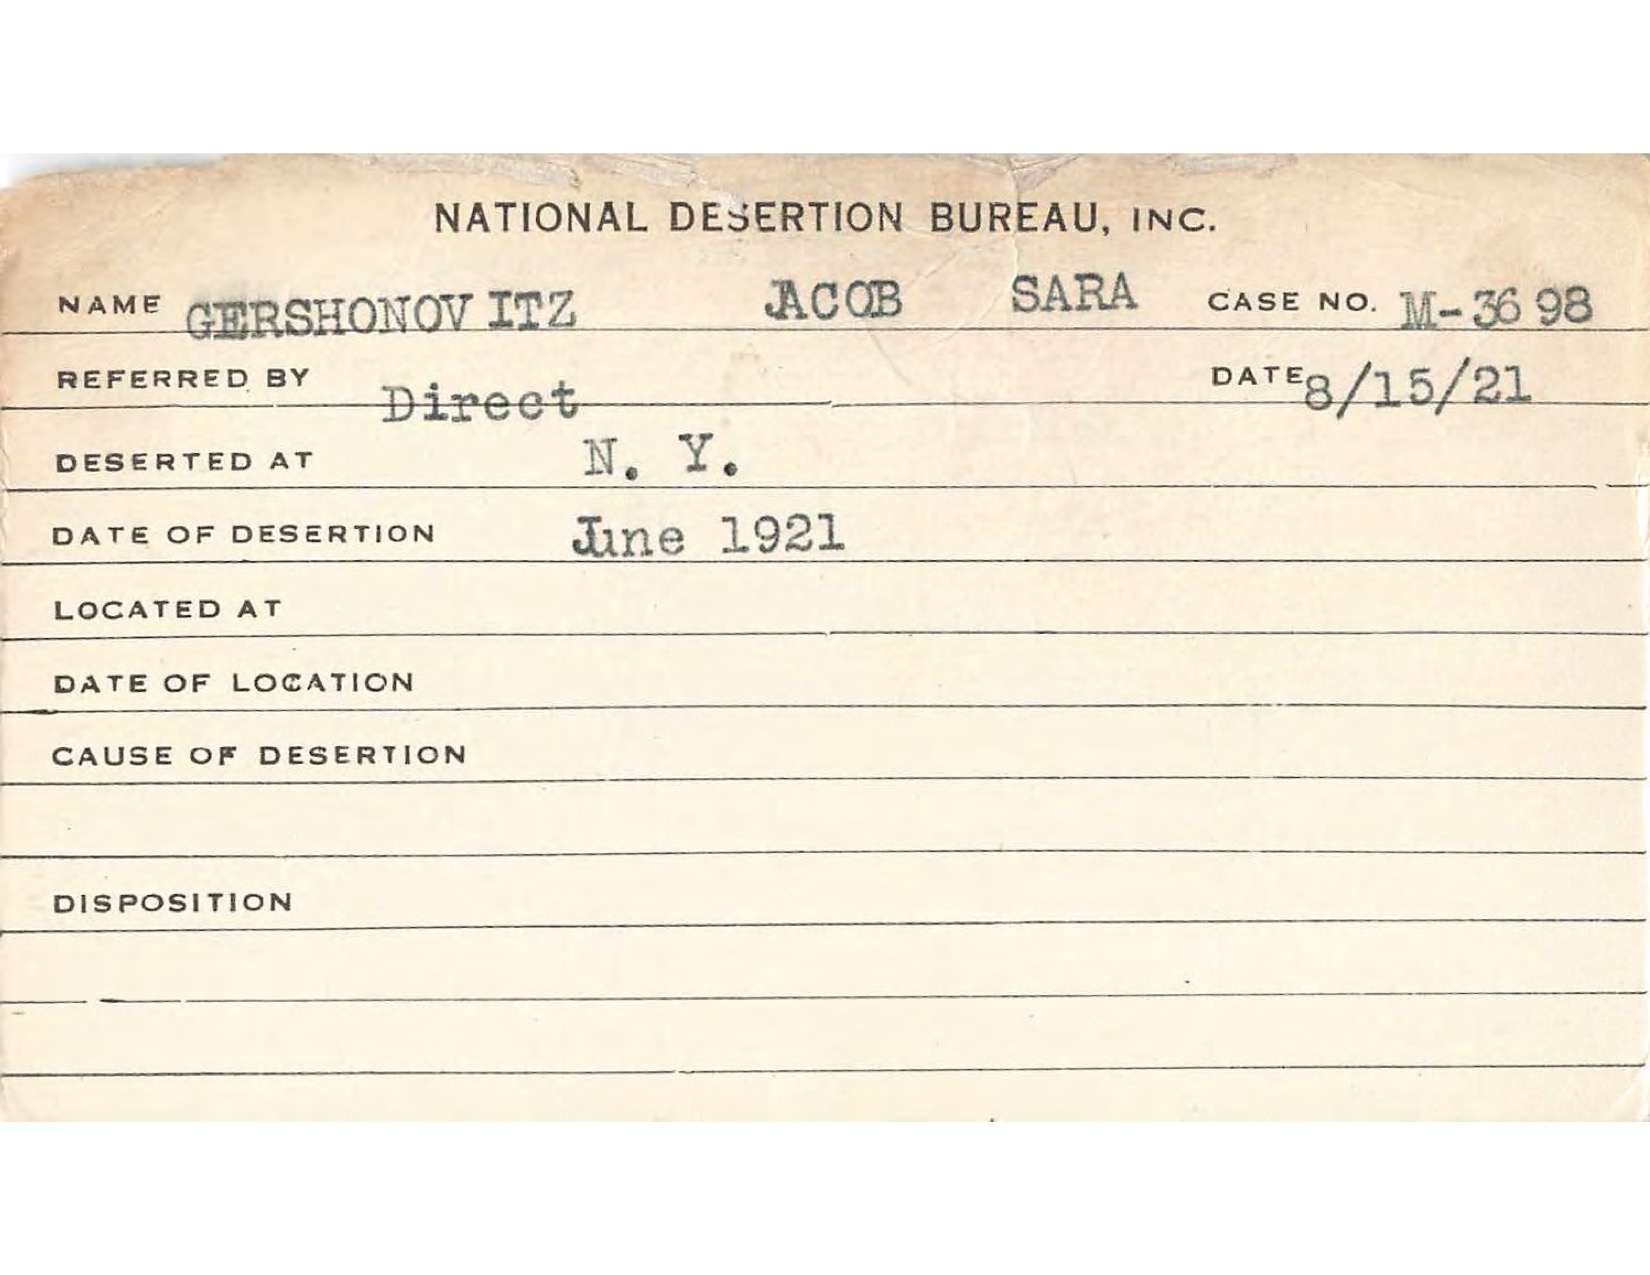 NATIONAL DESERTION BUREAU, INC.
NAME GERSHONOVITZ JACOB SARA CASE NO. M-3698
REFERRED BY Direct DATE 8/15/21
DESERTED AT N. Y.
DATE OF DESERTION June 1921
LOCATED AT
DATE OF LOCATION
CAUSE OF DESERTION
DISPOSITION